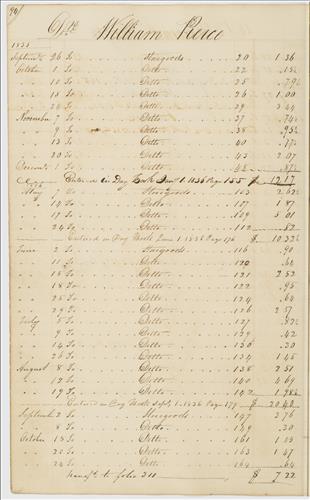 Dr. William Pierce
1835
Septemb. 26 To Storegoods 20 1.36
October 1 To Ditto 22
10 To Ditto 25
13 To Ditto 26 1.00
29 To Ditto 34
November 7 To Ditto 37
9 To Ditto 38
13 To Ditto 40
20 To Ditto 43 2.07
To Ditto 48
Entered in Day Book Jany 1. 1836 Page 155 $
May 7 To Storegoods 103 2.62½
14 To Ditto 107 1.87
17 To Ditto 109 5.01
24 To Ditto 112
Entered in Day Book June 1. 1836 Page 176 $ 10.32½
June 2 To Storegoods 116 .90
11 To Ditto 120
18 To Ditto 121 2.52
18 To Ditto 122 .95
25 To Ditto 124 .64
29 To Ditto 126 2.57
July To Ditto 127
9 To Ditto 129 .42
14 To Ditto 130 .30
26 To Ditto 134 1.45
August 8 To Ditto 138 2.51
12 To Ditto 140 4.69
19 To Ditto 142
Entered in Day Book Sept. 1. 1836 Page 177 $
Septemb. 2 To Storegoods 147 2.76
8 To Ditto 149 .30
October 18 To Ditto 161
To Ditto 163 1.47
24 To Ditto 164 .64
Transfd. to folio 211 $ 7.22